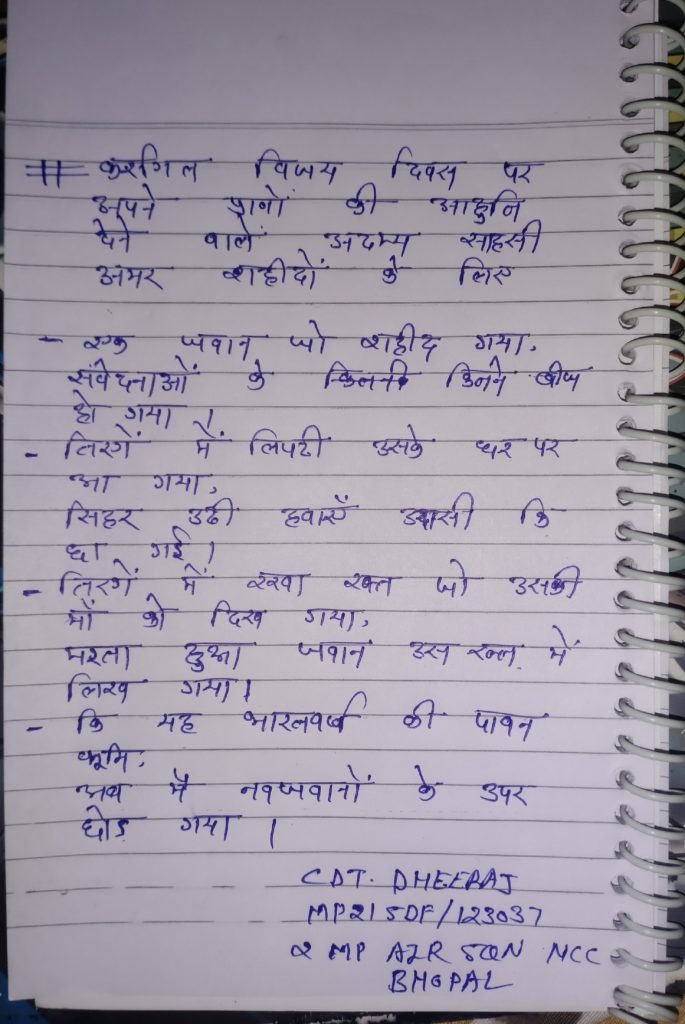 # करगिल विजय दिवस पर
अपने प्राणों की आहुति
देने वाले अदम्य साहसी
अमर शहीदों के लिए
- एक जवान जो शहीद गया,
संवेदनाओं के कितनी कितने बीज
हो गया ।
- तिरगें में लिपटी उसके घर पर
आ गया,
सिहर उठी हवाएँ उदासी कि
छा गई ।
- तिरगें में रखा रक्त जो उसकी
माँ को दिख गया,
मरता हुआ जवान उस रक्त में
लिख गया ।
- कि यह भारतवर्ष की पावन
भूमि,
अब मै नवजवानों के उपर
छोड गया ।
CDT. DHEERAJ
MP21SDF/123037
2 MP AIR SQN NCC
BHOPAL